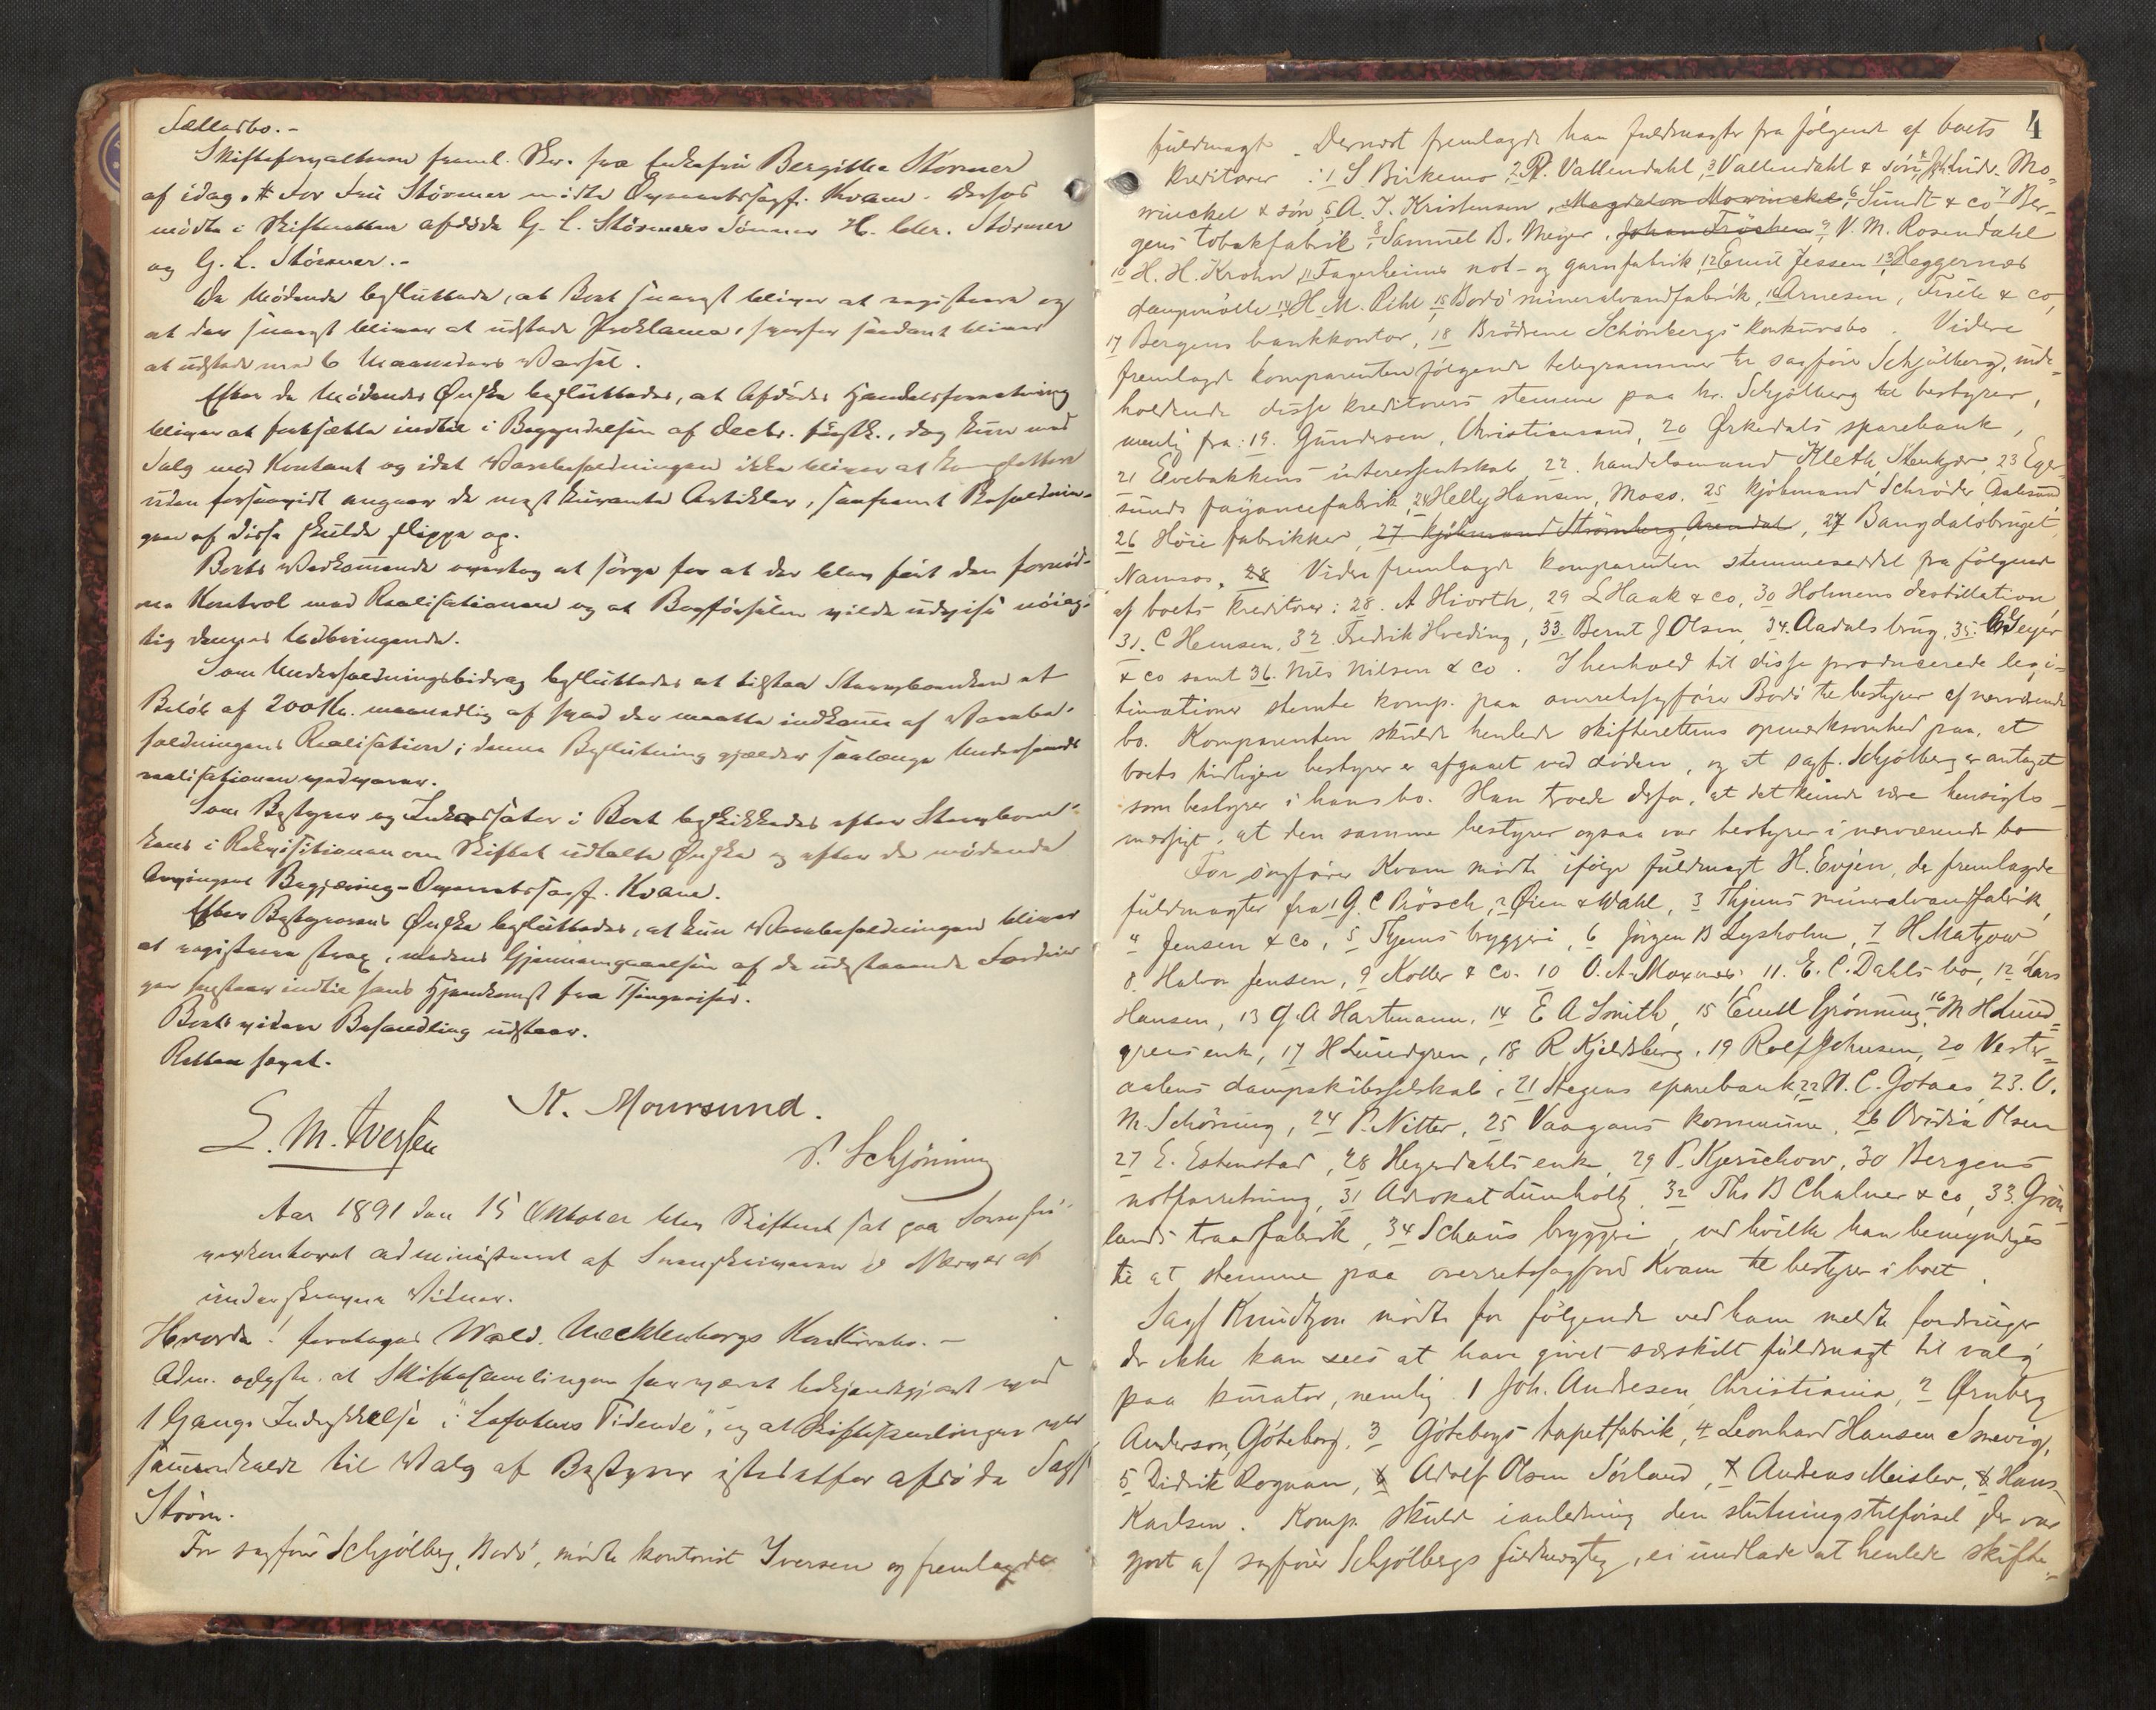 Fællesbo.-
Skifteforvalteren freml. Skr. fra Enkefru Bergitha Störmer
af idag. # For Fru Störmer mödte Overretssagf. Kvam. Desuden
mödte i Skifteretten afdöde G. L. Störmers Sönner H. Chr. Störmer
og G. L. Störmer.-
De Mödende besluttede, at Boet snarest bliver at registrere og
at der snarest bliver at udstede Proklama, hvorfor saadant bliver
at udstede med 6 Maaneders Varsel.
Efter de Mödendes Önske besluttedes, at Afdödes Handelsforretning
bliver at fortsætte indtil i Begyndelsen af Decbr. förstk., dog kun med
Salg mod Kontant og idet Varebeholdningen ikke bliver at komplettere
uden forsaavidt angaar de mest kurante Artikler, saafremt Beholdnin-
gen af disse skulde slippe op.
Boets Vedkommende overtog at sörge for at der blev fört den fornöd-
ne Kontrol med Realisationen og at Bogförselen vilde udvise nöiag-
tig dennes Udbringende.
Som Underholdningsbidrag besluttedes at tilstaa Stervboenken et
Belöb af 200 Kr. maanedlig af hvad der maatte indkomme af Varebe-
holdningens Realisation; denne Beslutning gjælder saalænge Underhaands-
realisationen vedvarer.
Som Bestyrer og Inkassator i Boet beskikkedes efter Stervboen-
kens i Rekvisitionen om Skiftet udtalte Önske og efter de mödende
Arvingers Begjæring - Overretssagf. Kvam.
Efter Bestyrerens Önske besluttedes, at kun Varebeholdningen bliver
at registrere strax, medens Gjennemgaaelsen af de udestaaende Fordrin-
ger henstaar indtil hans Hjemkomst fra Thingreiser.
Boets videre Behandling udstaar.
Retten hævet.
K. Moursund.
L. M. Iversen
P. Schjönning
Aar 1891 den 15 Oktober blev Skifteret sat paa Sorenskri-
verkontoret administreret af Sorenskriveren i Nærvær af
underskrevne Vidner.
Hvorda! foretoges Wald. Mecklenborgs Konkursbo.-
Adm. oplyste at Skiftesamlingen har været bekjendtgjort ved
1 Gangs Indrykkelse i "Lofotens Tidende", og at Skiftesamlingen var
sammenkaldt til Valg af Bestyrer istedetfor afdöde Sagf
Ström.
For sagförer Schjölberg, Bodö, mödte kontorist Iversen og fremlagde
4
fuldmagt. Dernæst fremlagde han fuldmagter fra fölgende af boets
kreditorer: 1 S Birkemo, 2 P. Vallendahl, 3 Vallendahl & sön, 4 Joh Ludv. Mo-
winckel & sön, 5 A. J. Kristensen, Magdalon Mowinckel, 6 Sundt & co 7 Ber-
gens tobakfabrik, 8 Samuel B. Meyer, Johan Fröchen 9 V. M. Rosendahl
10 H. H. Krohn, 11 Fagerheims not- og garnfabrik, 12 Emil Jessen 13 Heggernæs
dampmölle, 14 H. M. Pihl, 15 Bodö mineralvandfabrik, 16 Arnesen, & co,
17 Bergens bankkontor, 18 Brödrene Schönbergs konkursbo. Videre
fremlagde komparenten fölgende telegrammer til sagförer Schjölberg, inde-
holdende disse kreditorers stemme paa hr. Schjölberg til bestyrer,
nemlig fra: 19. Gundersen, Christianssund, 20 Örkedals sparebank,
21 Elvebakkens interessentskab, 22. handelsmand Kleth, Stenkjær, 23 Eger-
sunds fayancefabrik, 24 Helly Hansen, Moss. 25 kjöbmand Schröder Aalesund,
26 Höie fabrikker, 27 kjöbmand Strömberg, Arendal, 27 Bangdalsbruget,
Namsos. 28 Videre fremlagde komparenten stemmeseddel fra fölgende
af boets kreditorer: 28. A Hiorth, 29 L Haak & co, 30 Holmens destillation,
31. C Hemsen, 32. Fredrik Hveding, 33. Bernt J Olsen, 34. Aadals brug, 35. Geijer
& co samt 36. Nils Nilsen & co. I henhold til disse producerede legi-
timationer stemte komp. paa overretssagförer Bodö til bestyrer af nærværende
bo. Komparenten skulde henlede skifterettens opmerksomhed paa, at
boets tidligere bestyrer er afgaaet ved döden, og at sagf. Schjölberg er antaget
som bestyrer i hans bo. Han troede derfor, at det kunde være hensigts-
mæssigt, at den samme bestyrer ogsaa var bestyrer i nærværende bo
For sagförer Kvam mödte ifölge fuldmagt H. Evjen, der fremlagde
fuldmagter fra 1 G. C Pösch, 2 Öien & Wahl, 3 Thjems mineralvandfabrik,
4 Jensen & co, 5 Tjems bryggeri, 6 Jörgen B Lysholm, 7 H Matzow
8. Halvor Jensen, 9 Koller & Co. 10 O. A. Moxnes. 11. E. C. Dahls bo, 12 Lars
Hansen, 13 G. A Hartmann, 14 E A Smith, 15 Emil Grönning, 16 M H Lund-
grens enke, 17 H Lundgren, 18 R Kjeldsberg, 19 Rolf Johnsen, 20 Vester-
aalens dampskibsselskab, 21 Stegens sparebank, 22 N. C. Gotaas, 23. O.
M. Schöning, 24 P. Nitter, 25 Vaagans kommune, 26 Ovidia Olsen
27 E. Estenstad, 28 Heyerdahls enke, 29 P. Kjerschow, 30 Bergens
notforretning, 31 Advokat Lumholtz, 32 Ths B Chalmer & co, 33. Grön-
lands traadfabrik, 34 Schous bryggeri, ved hvilke han bemyndiges
til at stemme paa overretssagförer Kvam til bestyrer i boet.
Sagf Knudtzon mödte for fölgende ved ham meldte fordringer
der ikke kan sees at have givet særskilt fuldmagt til valg
paa kurator, nemlig. 1 Joh. Andresen, Christiania, 2 Örnberg
Anderson, Göteborg. 3 Göteborgs tapetfabrik, 4 Leonhard Hansen Snevig,
5 Didrik Rognan, 6 Adolf Olsen Sörland, 7 Andreas Meisler, 8 Hans
Karlsen. Komp. skulde ianledning den slutningstilförsel der var
gjort af sagförer Schjölbergs fuldmægtig, ei undlade at henlede skifte-